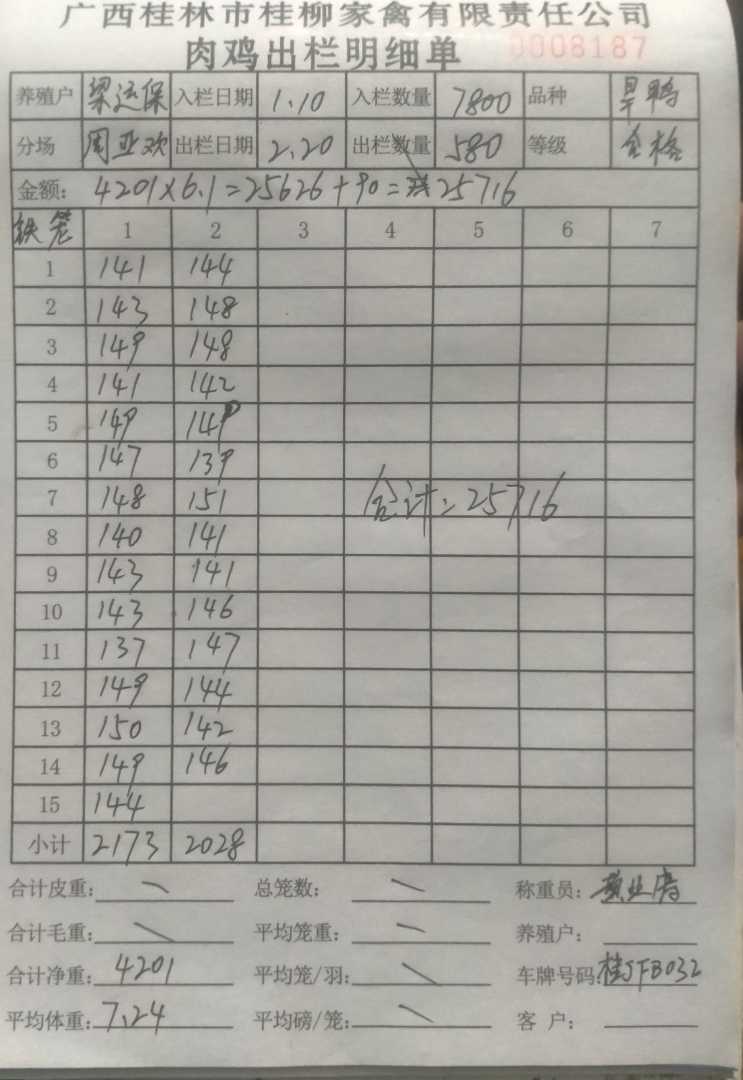 广西桂林市桂柳家禽有限责任公司
肉鸡出栏明细单 0008187
养殖户 梁运保 入栏日期 1.10 入栏数量 7800 品种 旱鸭
分场 周亚欢 出栏日期 2.20 出栏数量 580 等级 合格
金额: 4201×6.1=25626+90=25716
铁笼 1 2 3 4 5 6 7
1 141 144
2 143 148
3 149 148
4 141 142
5 149 149
6 147 139
7 148 151
合计=25716
8 140 141
9 143 141
10 143 146
11 137 147
12 149 144
13 150 142
14 149 146
15 144
小计 2173 2028
合计皮重: 总笼数: 称重员:
合计毛重: 平均笼重: 养殖户:
合计净重: 4201 平均笼/羽: 车牌号码: 桂JFB032
平均体重: 7.24 平均磅/笼: 客户: